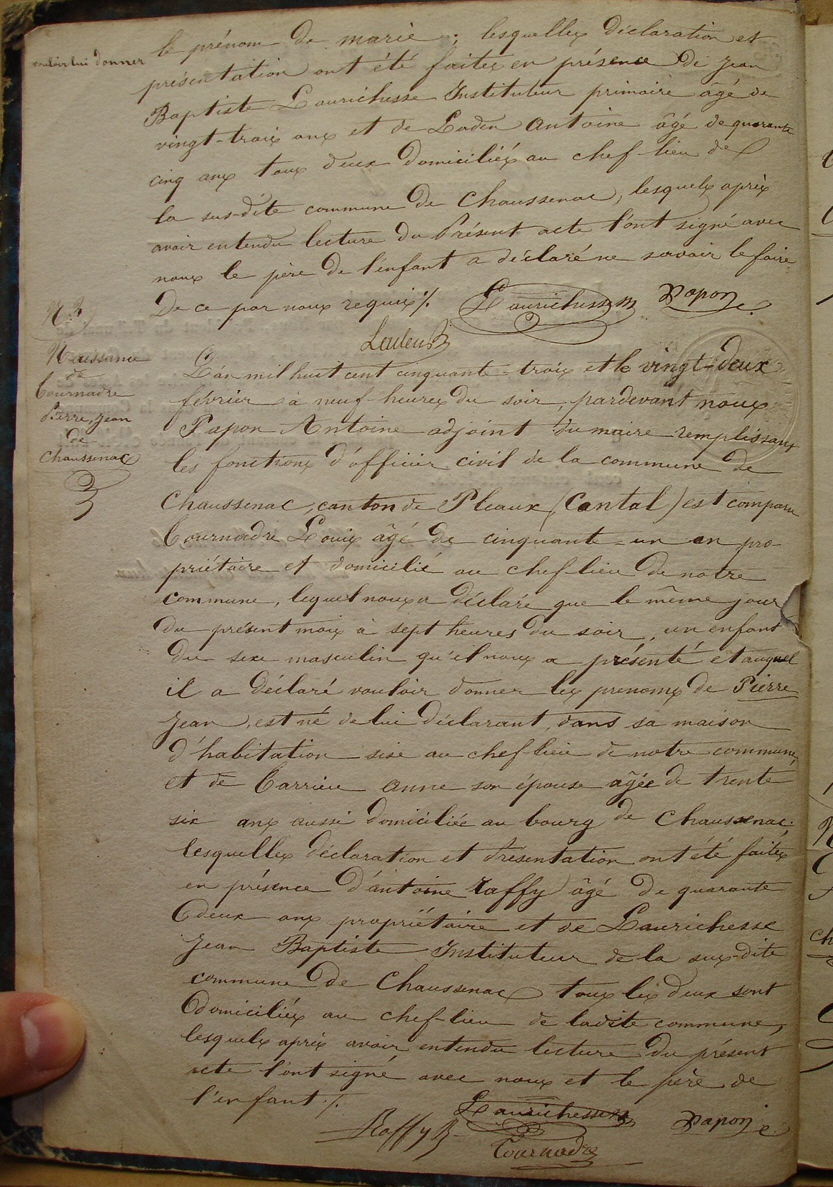 vouloir lui donner
le prénom de marie ; lesquelles déclaration et
présentation ont été faites en présence de Jean
Baptiste Laurichesse Instituteur primaire âgé de
vingt-trois ans et de Antoine âgé de quarante
cinq ans tous deux domiciliés au chef-lieu de
la sus-dite commune de Chaussenac, lesquels après
avoir entendu lecture du Présent acte l'ont signé avec
nous le père de l'enfant a déclaré ne savoir le faire
De ce par nous requis /.
Laurichesse Papon
N° 3
Naissance
de
Tournadre
Pierre Jean
de
Chaussenac
L'an mil huit cent cinquante-trois et le vingt-deux
février à neuf heures du soir, pardevant nous
Papon Antoine adjoint du maire remplissant
les fonctions d'officier civil de la commune de
Chaussenac, canton de Pleaux (Cantal) est comparu
Tournadre Louis âgé de cinquante-un an pro-
priétaire et domicilié au chef-lieu de notre
commune, lequel nous a déclaré que le même jour
du présent mois à sept heures du soir, un enfant
du sexe masculin qu'il nous a présenté et auquel
il a déclaré vouloir donner les prénoms de Pierre
Jean, est né de lui déclarant dans sa maison
d'habitation sise au chef-lieu de notre commune,
et de Carrieu anne son épouse âgée de trente
six ans aussi domiciliée au bourg de Chaussenac.
lesquelles déclaration et Présentation ont été faites
en présence d'antoine Raffy âgé de quarante
deux ans propriétaire et de Laurichesse
Jean Baptiste Instituteur de la sus-dite
commune de Chaussenac tous les deux sont
Domiciliés au chef-lieu de ladite commune,
lesquels après avoir entendu lecture du présent
acte l'ont signé avec nous et le père de
l'enfant /.
Laurichesse Papon
Raffy Tournadre